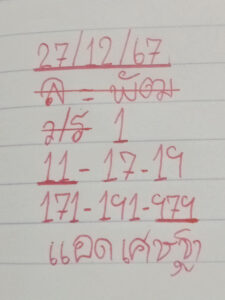 27/12/67
ล = พัดม
ว/ร์ 1
11 - 17 - 19
171 - 191 - 979
แอดเศรษฐา